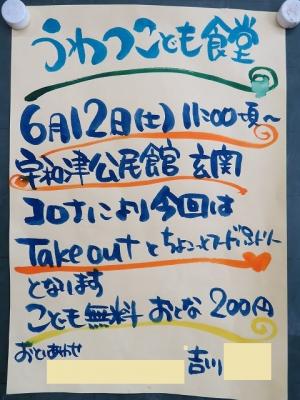 うわつこども食堂
6月12日(土) 11:00頃〜
宇和津公民館 玄関
コロナにより今回は
Takeout とちょこっとフードパントリー
となります
こども無料 おとな 200円
おといあわせ
吉川